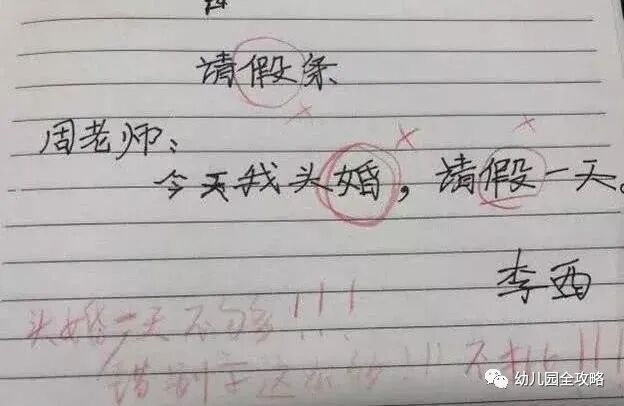 请假条
周老师：
今天我头婚，请假一天。
李西
头婚一天不够！！！
错别字这么！！！不！！！
幼儿园全攻略